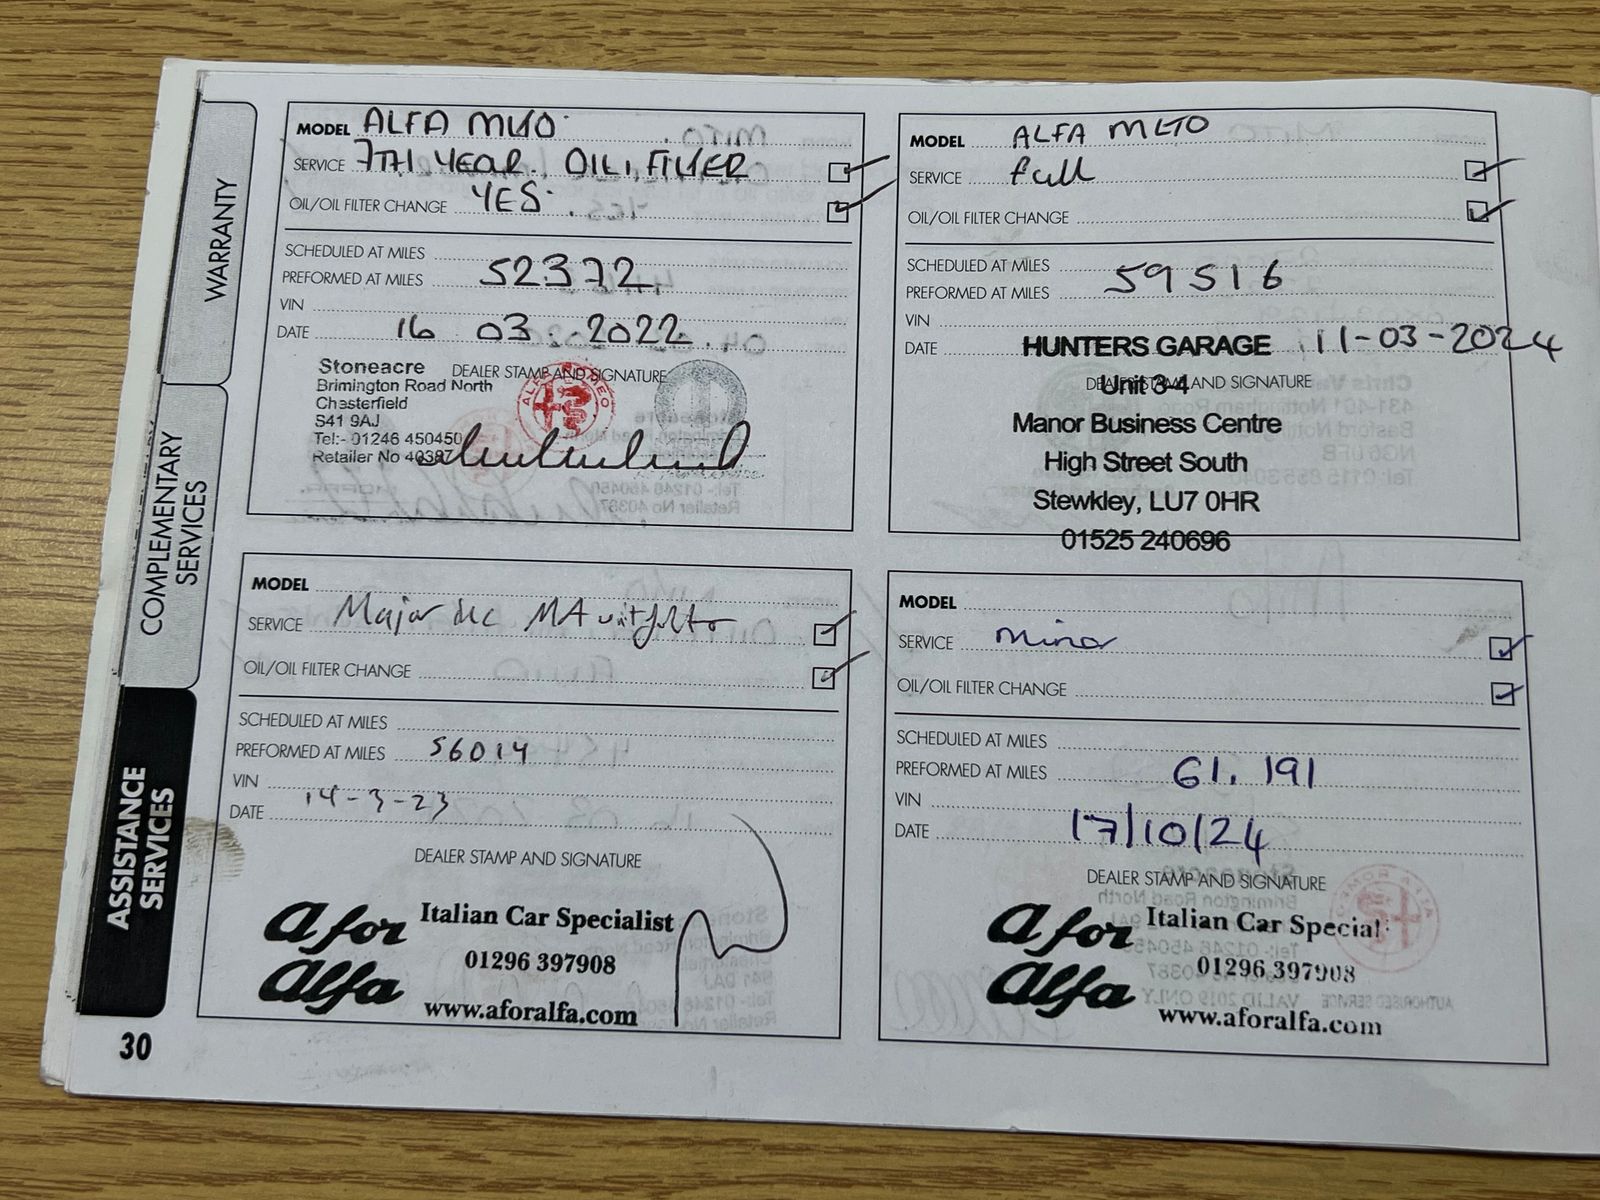 WARRANTY
COMPLEMENTARY
SERVICES
ASSISTANCE
SERVICES
30
MODEL ALFA MITO
SERVICE 7TH YEAR. OIL, FILTER
OIL/OIL FILTER CHANGE YES.
SCHEDULED AT MILES
PREFORMED AT MILES 52372
VIN
DATE 16 03 2022
DEALER STAMP AND SIGNATURE
Stoneacre
Brimington Road North
Chesterfield
S41 9AJ
Tel:- 01246 450450
Retailer No 40387
MODEL ALFA MITO
SERVICE full
OIL/OIL FILTER CHANGE
SCHEDULED AT MILES
PREFORMED AT MILES 59516
VIN
DATE 11-03-2024
DEALER STAMP AND SIGNATURE
HUNTERS GARAGE
Unit 3-4
Manor Business Centre
High Street South
Stewkley, LU7 0HR
01525 240696
MODEL
SERVICE Major
OIL/OIL FILTER CHANGE
SCHEDULED AT MILES
PREFORMED AT MILES 56014
VIN
DATE 14-3-23
DEALER STAMP AND SIGNATURE
A for
Alfa
Italian Car Specialist
01296 397908
www.aforalfa.com
MODEL
SERVICE Minor
OIL/OIL FILTER CHANGE
SCHEDULED AT MILES
PREFORMED AT MILES 61.191
VIN
DATE 17/10/24
DEALER STAMP AND SIGNATURE
A for
Alfa
Italian Car Special
01296 397908
www.aforalfa.com